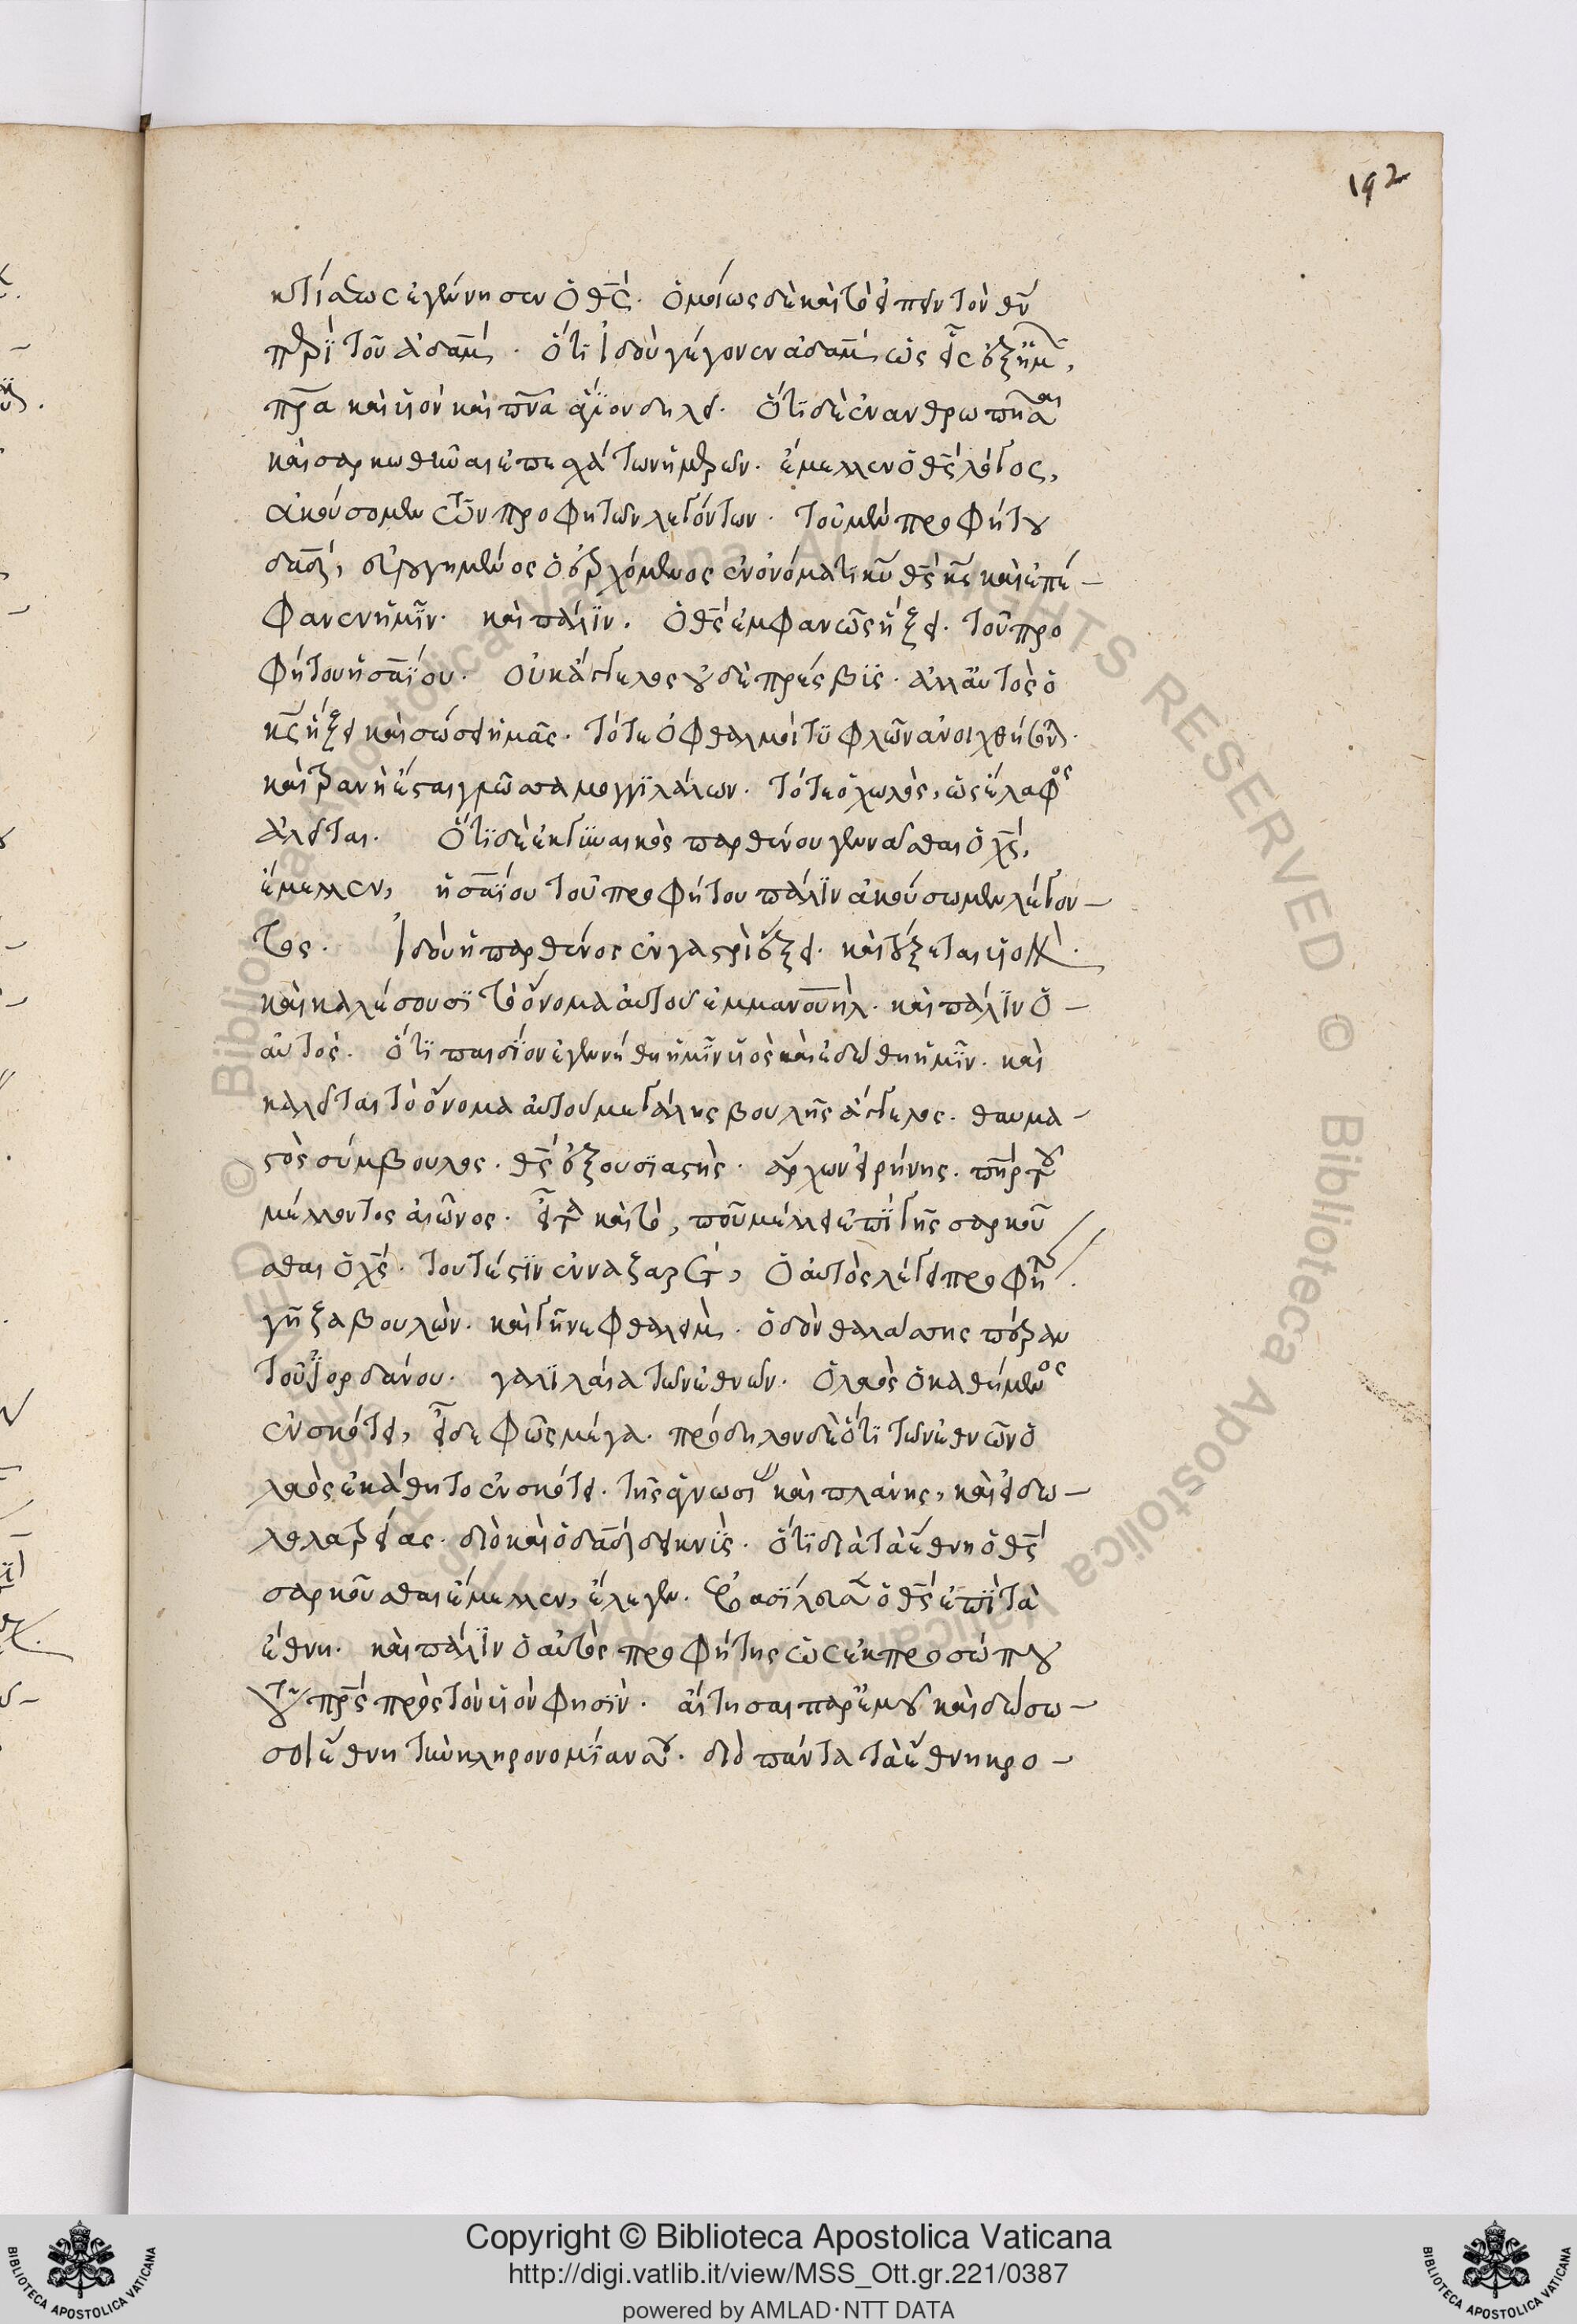 192
κτίσεως ἐγέννησεν ὁ θς̄. ὁμοίως δὲ καὶ τὸ εἰπεῖν τὸν θν̄
περὶ τοῦ ἀδὰμ. ὅτι ἰδοὺ γέγονεν ἀδὰμ ὡς εἷς ἐξ ἡμῶν,
πρ̄α καὶ υἱὸν καὶ πνᾱ ἅγιον δηλοῖ. ὅτι δὲ ἐνανθρωπῆσαι
καὶ σαρκωθῆναι ἐπεσχάτων ἡμερῶν. ἔμελλεν ὁ θς̄ λόγος,
ἀκούσομεν τῶν προφητῶν λεγόντων. τοῦ μὲν προφήτου
δαδ̄, εὐλογημένος ὁ ἐρχόμενος ἐν ὀνόματι κῡ θς̄ κς̄ καὶ ἐπέ-
φανεν ἡμῖν. καὶ πάλιν. ὁ θς̄ ἐμφανῶς ἥξει. τοῦ προ
φήτου ἡσαΐου. οὐκ ἄγγελος οὐδὲ πρέσβις. ἀλλ' αὐτὸς ὁ
κς̄ ἥξει καὶ σώσει ἡμᾶς. τότε ὀφθαλμοὶ τυφλῶν ἀνοιχθήσονται.
καὶ τρανὴ ἔσται γλῶσσα μογγιλάλων. τότε ὁ χωλὸς, ὡς ἔλαφος
ἁλεῖται. ὅτι δὲ ἐκ γυναικὸς παρθένου γεννᾶσθαι ὁ χς̄,
ἔμελλεν, ἡσαΐου τοῦ προφήτου πάλιν ἀκούσωμεν λέγον-
τος. ἰδοὺ ἡ παρθένος ἐν γαστρὶ ἕξει. καὶ τέξεται υἱὸν.
καὶ καλέσουσι τὸ ὄνομα αὐτοῦ ἐμμανουὴλ. καὶ πάλιν ὁ-
αὐτὸς. ὅτι παιδίον ἐγεννήθη ἡμῖν υἱὸς καὶ ἐδώθη ἡμῖν. καὶ
καλεῖται τὸ ὄνομα αὐτοῦ μεγάλης βουλῆς ἄγγελος. θαυμα-
στὸς σύμβουλος. θς̄ ἐξουσιαστὴς. ἄρχων εἰρήνης. πηρ̄ τοῦ
μέλλοντος αἰῶνος. εἶτα καὶ τὸ, ποῦ μέλλει ἐπὶ γῆς σαρκοῦ
σθαι ὁ χς̄. τουτέστιν ἐν ναζαρὲτ, ὁ αὐτὸς λέγει προφήτης.
γῆ ζαβουλὼν. καὶ γῆ νεφθαλεὶμ. ὁδὸν θαλάσσης πέραν
τοῦ ἰορδάνου. γαλιλαία τῶν ἐθνῶν. ὁ λαὸς ὁ καθήμενος
ἐν σκότει, εἶδε φῶς μέγα. πρόδηλον δὲ ὅτι τῶν ἐθνῶν ὁ
λαὸς ἐκάθητο ἐν σκότει. τῆς ἀγνωσίας καὶ πλάνης, καὶ εἰδω-
λολατρείας. διὸ καὶ ὁ δαδ̄ δεικνὺς. ὅτι διὰ τὰ ἔθνη ὁ θς̄
σαρκοῦσθαι ἔμελλεν, ἔλεγεν. ἐβασίλευσεν ὁ θς̄ ἐπὶ τὰ
ἔθνη. καὶ πάλιν ὁ αὐτὸς προφήτης ὡς ἐκ προσώπου
τοῦ πρς̄ πρὸς τὸν υἱὸν φησὶν. αἴτησαι παρ' ἐμοῦ καὶ δώσω-
σοι ἔθνη τὴν κληρονομίαν σου. διὸ πάντα τὰ ἔθνη κρο-
Copyright © Biblioteca Apostolica Vaticana
http://digi.vatlib.it/view/MSS_Ott.gr.221/0387
powered by AMLAD·NTT DATA